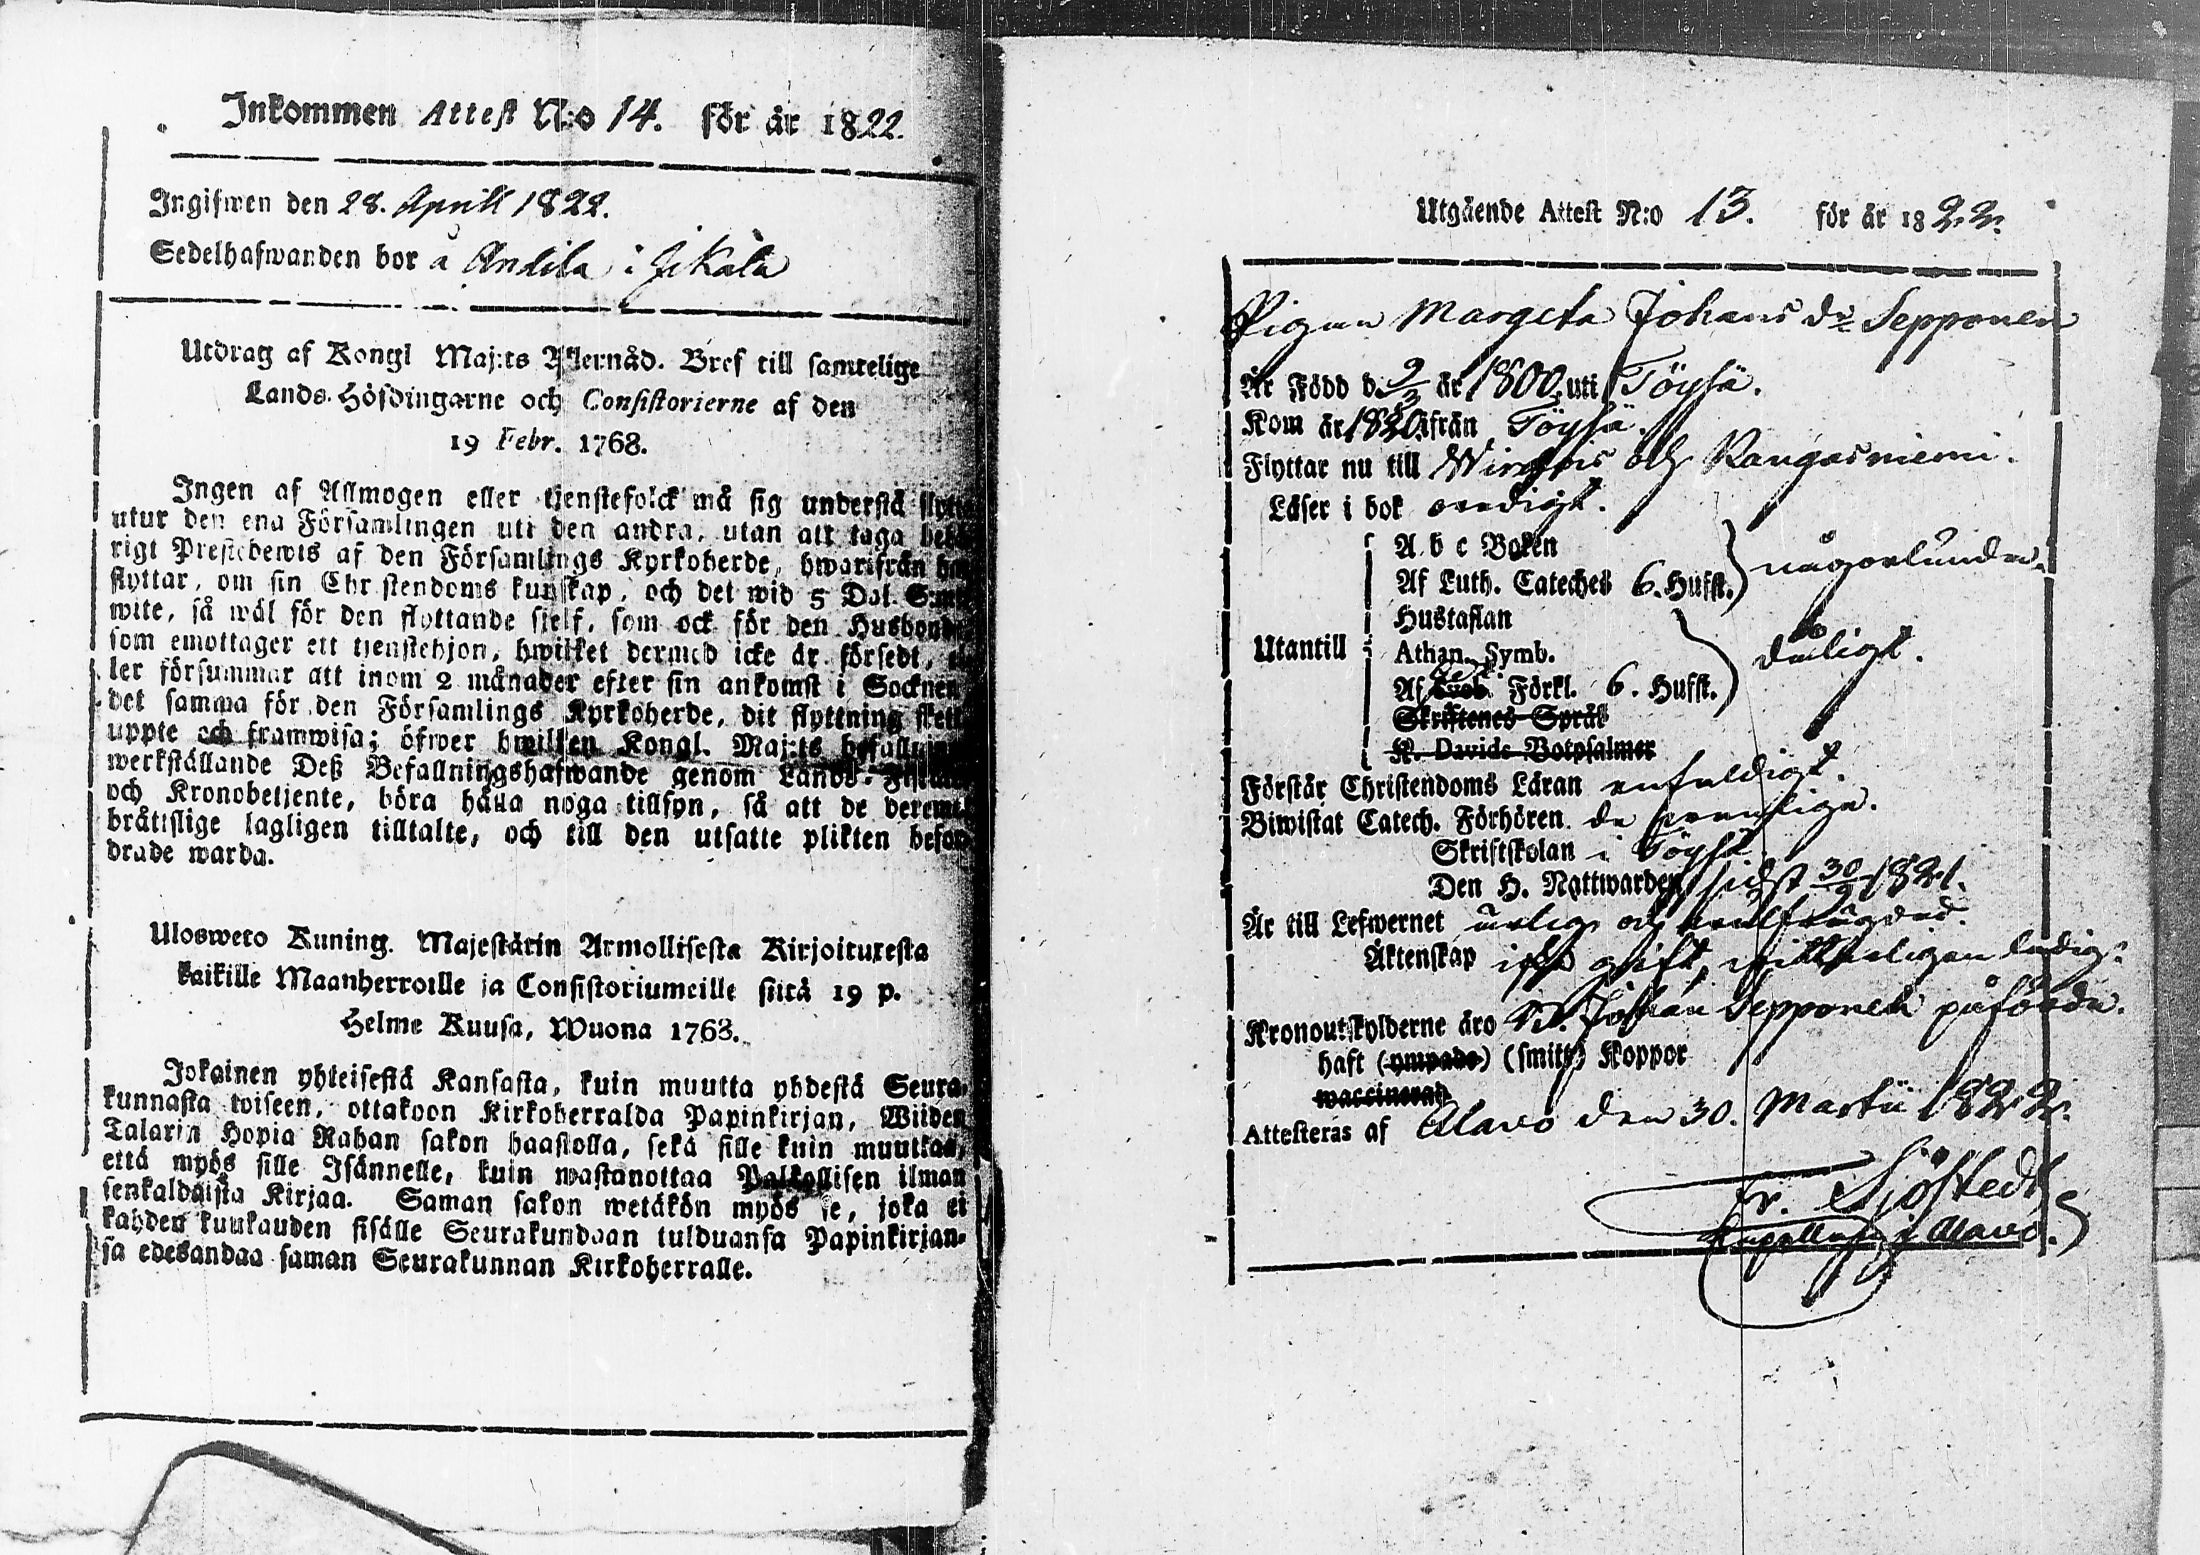 Inkommen Attest N:o 14. för år 1822.
Ingifwen den 28. Aprill 1822.
Sedelhafwanden bor å Anlila i Jikala
Utdrag af Kongl Maj:ts Allernåd. Bref till samtelige
Lands-Höfdingarne och Consistorierne af den
19 Febr. 1768.
Ingen af Allmogen eller tjenstefolck må sig understå flytta
utur den ena Församlingen uti den andra, utan att taga behö-
rigt Prestebewis af den Församlings Kyrkoherde, hwarifrån han
flyttar, om sin Christendoms kunskap, och det wid 5 Dal. S:mts
wite, så wäl för den flyttande sjelf, som ock för den Husbonde
som emottager ett tjenstehjon, hwilket dermed icke är försedt, el-
ler försummar att inom 2 månader efter sin ankomst i Socknen
det samma för den Församlings Kyrkoherde, dit flyttning skett
uppte och framwisa; öfwer hwilken Kongl. Maj:ts befallning
werkställande Deß Befallningshafwande genom Lands-
och Kronobetjente, böra hålla noga tillsyn, så att de deremot
bråttslige lagligen tilltalte, och till den utsatte plikten befor-
drade warda.
Ulosweto Kuning. Majestätin Armollisesta Kirjoituxesta
kaikille Maanherroille ja Consistoriumeille siitä 19 p.
Helme Kuusa, Wuona 1768.
Jokainen yhteisestä Kansasta, kuin muutta yhdestä Seura-
kunnasta toiseen, ottakoon Kirkoherralda Papinkirjan, Wiiden
Talarin Hopia Rahan sakon haastolla, sekä sille kuin muuttaa,
että myös sille Isännelle, kuin wastanottaa Palkollisen ilman
senkaldaista Kirjaa. Saman sakon wetäkön myös se, joka ei
kahden kuukauden sisälle Seurakundaan tulduansa Papinkirjan-
sa edesandaa saman Seurakunnan Kirkoherralle.
Utgående Attest N:o 13. för år 1822.
Pigan Margeta Johans dr Sepponen
Är Född d. 9/3 år 1800. uti Töysä.
Kom år 1820. ifrån Töysä.
Flyttar nu till Wirdois och Kangasniemi.
Läser i bok ordigt.
A b c Boken
Af Luth. Cateches 6. Hufst. någorlunda.
Hustaflan
Utantill Athan. Symb. dåligt.
Af Förkl. 6. Hufst.
Skriftenes Språk
K. Davids Botpsalmer
Förstår Christendoms Läran enfaldigt.
Biwistat Catech. Förhören de
Skriftskolan i Töysä
Den H. Nattwarden sidst 30/9 1821.
Är till Lefwernet ärlig och wälfrägdad.
Äktenskap icke gift, witterligen ledig.
Kronoutskylderne äro N. Johan Sepponen påförda.
haft (ympade) (smitt) Koppor
waccinerad
Attesteras af Alavo den 30. Martii 1822.
Er. Sjöstedt
Capellan i Alavo.